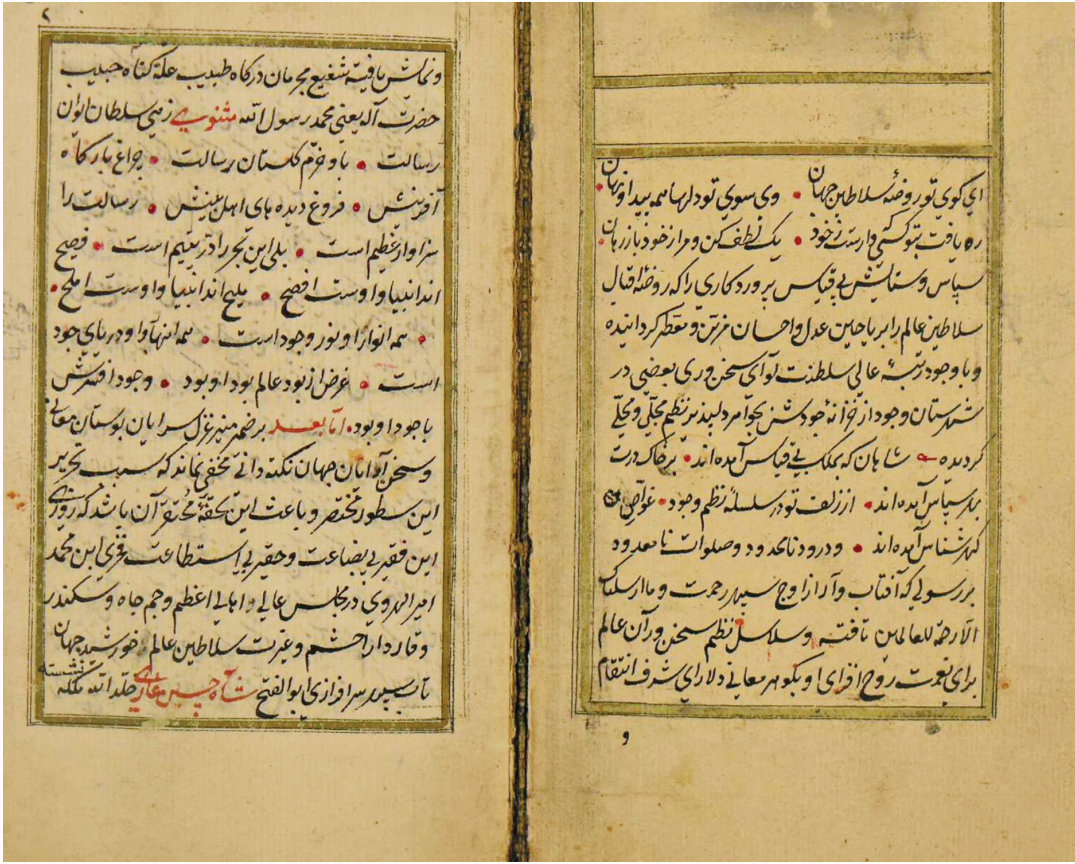 ای کوی تو روضهٔ سلاطین جهان • وی سوی تو دلها همه پیدا و نهان •
ره یافت بتو کسی که وارست ز خود • یک لطف کن و مرا ز خود باز رهان •
سپاس و ستایش بی قیاس پروردکاری را که روضهٔ اقبال
سلاطین عالم را بریاحین عدل و احسان مزین و معطر کردانیده
و با وجود رتبهٔ عالی سلطنت لوآی سخن وری بعضی در
شهرستان وجود از خزانهٔ جودش بجواهر دلپذیر نظم مجلّی و محلّی
کردیده شاهان که بملک بی قیاس آمده اند • بر خاک درت
بهر سپاس آمده اند • از زلف تو در سلسلهٔ نظم وجود • غوّاص
کهر شناس آمده اند • و درود نامحدود و صلوات نامعدود
بر رسولی که آفتاب وآر از اوج سپهر رحمت و ماارسلناک
الّا رحمة للعالمین تافته و سلاسل نظم سخن وران عالم
برای نعت روح افزای او بکوهر معانی دلارای شرف انتظام
و
و نمایش یافته شفیع مجرمان درکاه طبیب علّة کناه حبیب
حضرت آله یعنی محمد رسول الله مثنوی زهی سلطان ایوان
رسالت • باو خرّم کلستان رسالت • چراغ بارکاه
آفرینش • فروغ دیده های اهل بینش • رسالت را
سزاوار عظیم است • بلی این بحر را درّ یتیم است • فصیح
اند انبیا و اوست افصح • ملیح اند انبیا و اوست املح •
• همه انوار او نور وجود است • همه انهار او دریای جود
است • غرض از بود عالم بود او بود • وجود افرینش
با جود او بود • امّا بعد بر ضمیر منیر غزل سرایان بوستان معانی
و سخن آرایان جهان نکته دانی مخفی نماند که سبب تحریر
این سطور مختصر و باعث این تحفهٔ محتقر آن باشد که روزی
این فقیر بی بضاعت و حقیر بی استطاعت فخری ابن محمد
امیر الهروی در مجلس عالی و اهالی اعظم وجم جاه و سکندر
وقار دارا حشم و غیرت سلاطین عالم خورشید جهان
تاب سپهر سرافرازی ابو الفتح شاه حسین غازی خلد الله ملکه نشسته